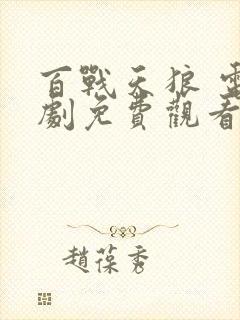 百戰天狼 電
劇免費觀看
趙葆秀